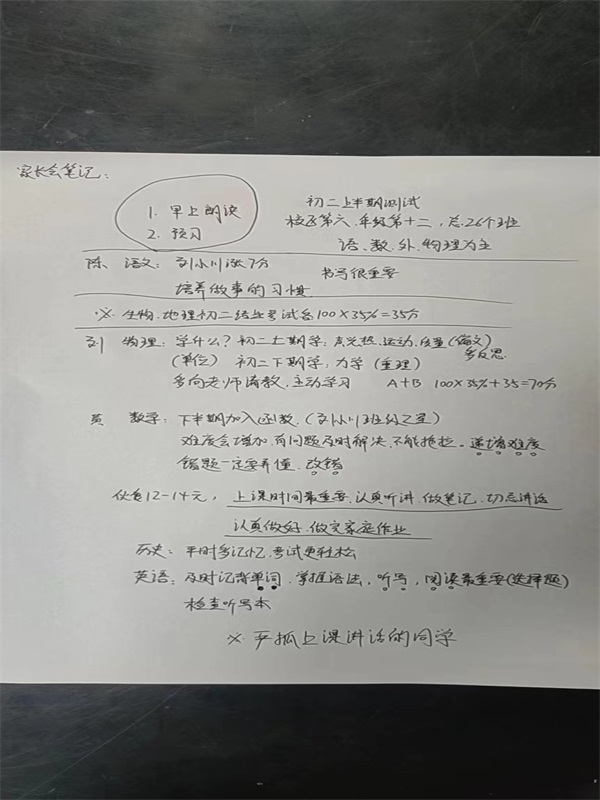 家长会笔记:
1. 早上朗读
2. 预习
初二上半期测试
校区第六.年级第十二,总26个班
语.数.外.物理为主
陈 语文: 刘小川涨7分 书写很重要
培养做事的习惯
※ 生物.地理初二结业考试各100×35%=35分
刘 物理: 学什么?初二上期学:声光热.运动.质量(偏文)
(单位) 初二下期学:力学(重理) 多反思
多向老师请教.主动学习 A+B 100×35%+35=70分
数学: 下半期加入函数.(刘小川班级之星)
难度会增加.有问题及时解决.不能拖拉.递增难度
错题一定要弄懂.改错
伙食12-14元, 上课时间最重要.认真听讲.做笔记.切忌讲话
认真做好.做实家庭作业
历史: 平时多记忆.考试更轻松
英语: 及时记背单词.掌握语法,听写,阅读最重要(选择题)
检查听写本
※ 严抓上课讲话的同学